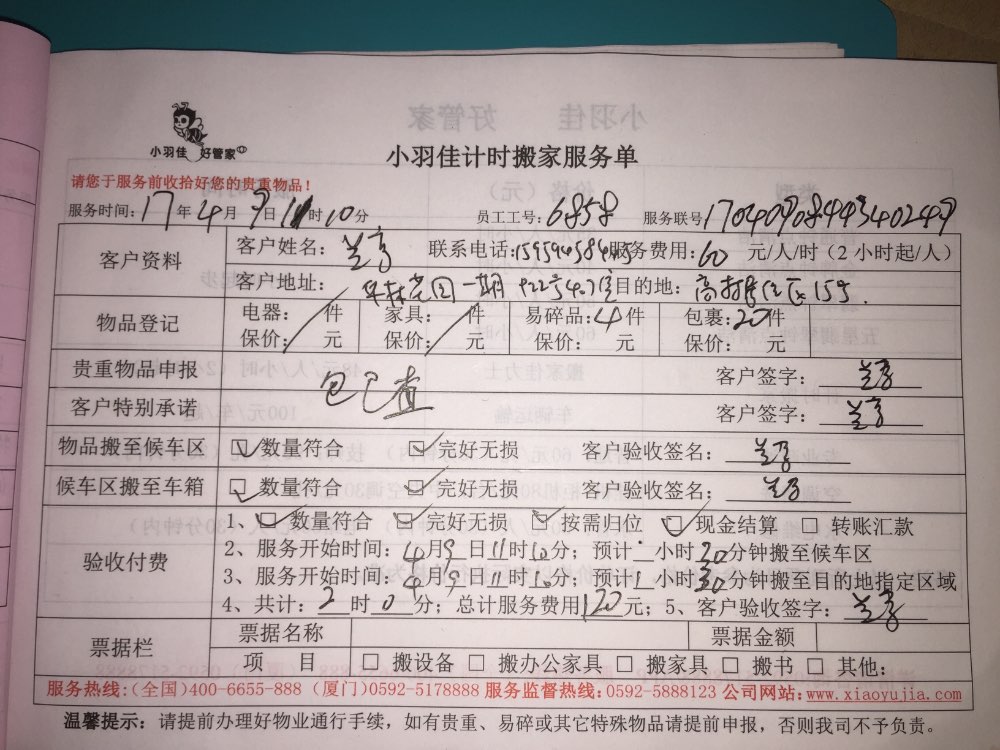 小羽佳 好管家
小羽佳计时搬家服务单
请您于服务前收拾好您的贵重物品！
服务时间：17年4月9日11时10分 员工工号：6858 服务联号
客户资料 客户姓名： 联系电话： 服务费用：60 元/人/时（2小时起/人）
客户地址： 目的地：
物品登记 电器： 件 家具： 件 易碎品：4件 包裹：20件
保价： 元 保价： 元 保价： 元 保价： 元
贵重物品申报 包已查 客户签字：
客户特别承诺 客户签字：
物品搬至候车区 数量符合 完好无损 客户验收签名：
候车区搬至车箱 数量符合 完好无损 客户验收签名：
验收付费 1、 数量符合 完好无损 按需归位 现金结算 转账汇款
2、服务开始时间：4月9日11时10分；预计 小时20分钟搬至候车区
3、服务开始时间：4月9日11时10分；预计1小时30分钟搬至目的地指定区域
4、共计：2时0分；总计服务费用120元；5、客户验收签字：
票据栏 票据名称 票据金额
项 目 搬设备 搬办公家具 搬家具 搬书 其他：
服务热线：(全国)400-6655-888 (厦门)0592-5178888 服务监督热线：0592-5888123 公司网站：www.xiaoyujia.com
温馨提示：请提前办理好物业通行手续，如有贵重、易碎或其它特殊物品请提前申报，否则我司不予负责。